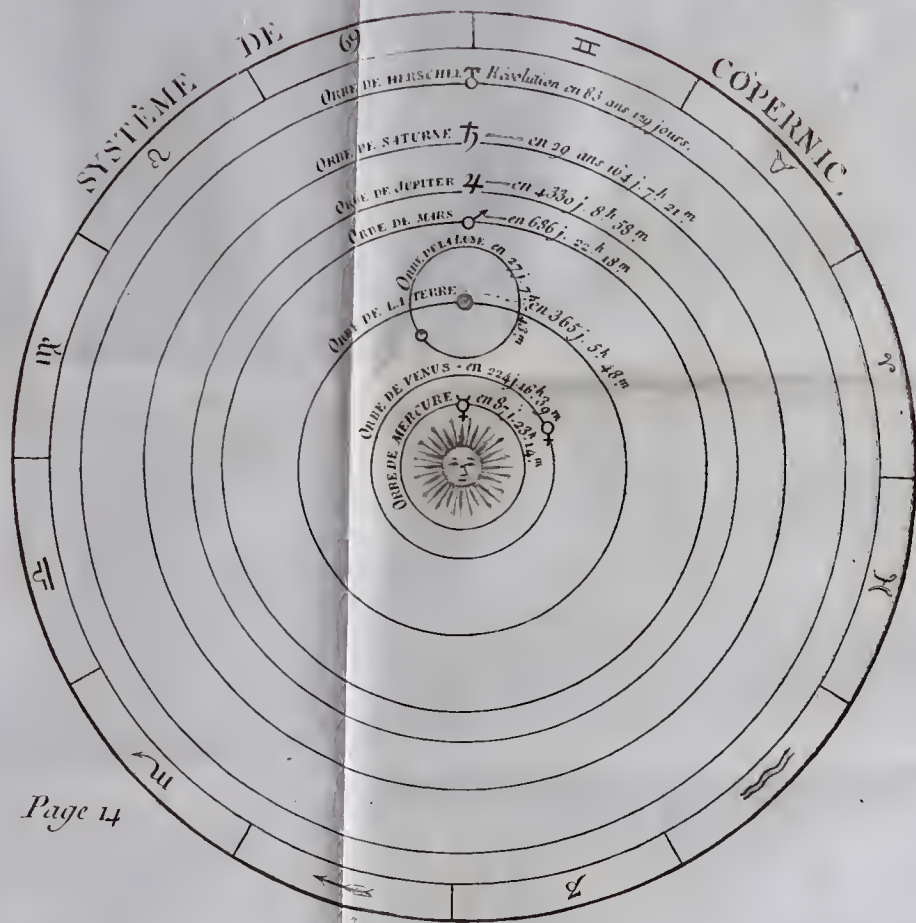 SYSTÈME DE COPERNIC.
ORBE DE HERSCHEL Révolution en 83 ans 129 jours.
ORBE DE SATURNE ♄ en 29 ans 164 j. 7h 21m
ORBE DE JUPITER ♃ en 4330 j. 8h 58m
ORBE DE MARS ♂ en 686 j. 22h 18m
ORBE DE LA LUNE en 27 j. 7h 43m
ORBE DE LA TERRE en 365 j. 5h 48m
ORBE DE VENUS en 224 j. 16h 39m
ORBE DE MERCURE en 87 j. 23h 14m
Page 14